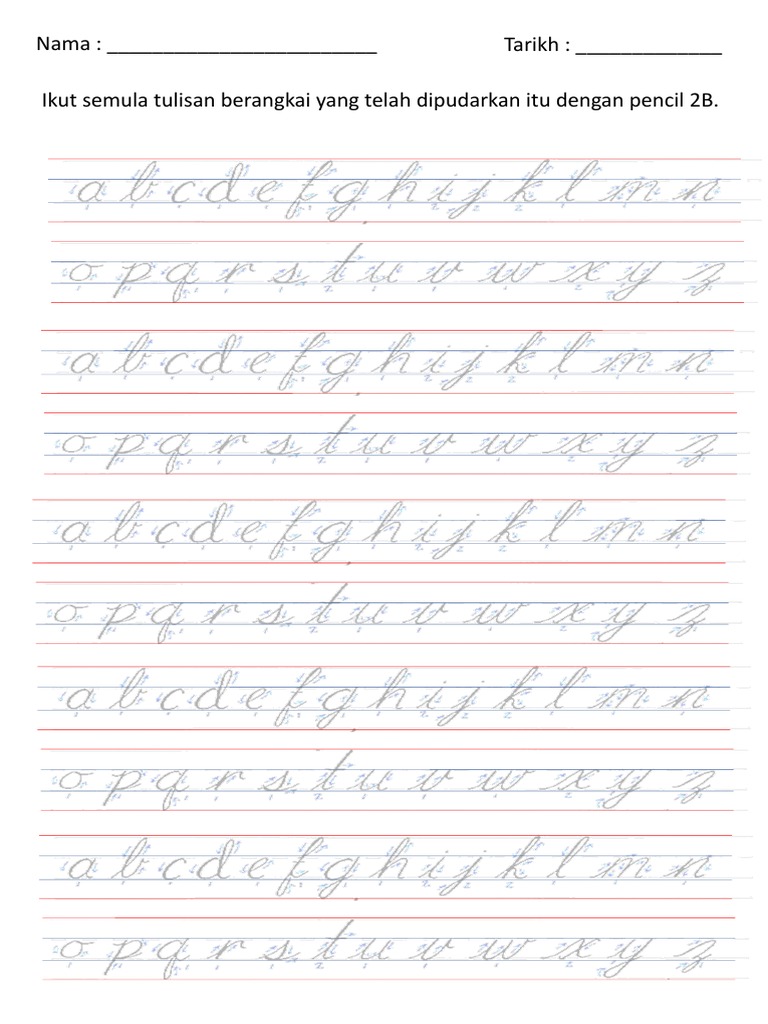 Nama : ________________________ Tarikh : _____________
Ikut semula tulisan berangkai yang telah dipudarkan itu dengan pencil 2B.
a b c d e f g h i j k l m n
o p q r s t u v w x y z
a b c d e f g h i j k l m n
o p q r s t u v w x y z
a b c d e f g h i j k l m n
o p q r s t u v w x y z
a b c d e f g h i j k l m n
o p q r s t u v w x y z
a b c d e f g h i j k l m n
o p q r s t u v w x y z